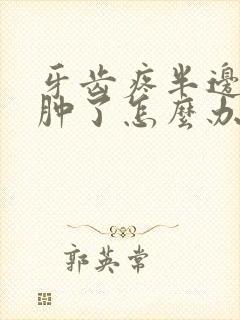 牙齿疼半邊
肿了怎麼办
郭英常